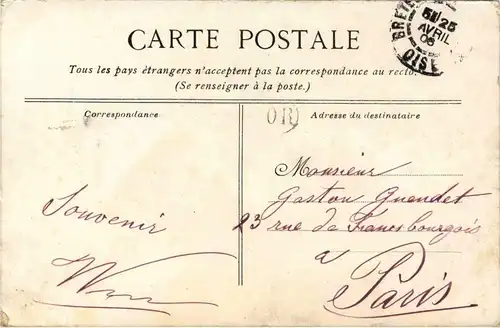 CARTE POSTALE
Tous les pays étrangers n'acceptent pas la correspondance au recto.
(Se renseigner à la poste.)
Correspondance
Adresse du destinataire
OR
BRETE
5E 25
AVRIL
06
OISE
Souvenir
Monsieur
Gaston Guendet
23 rue de Francs bourgeois
a
Paris